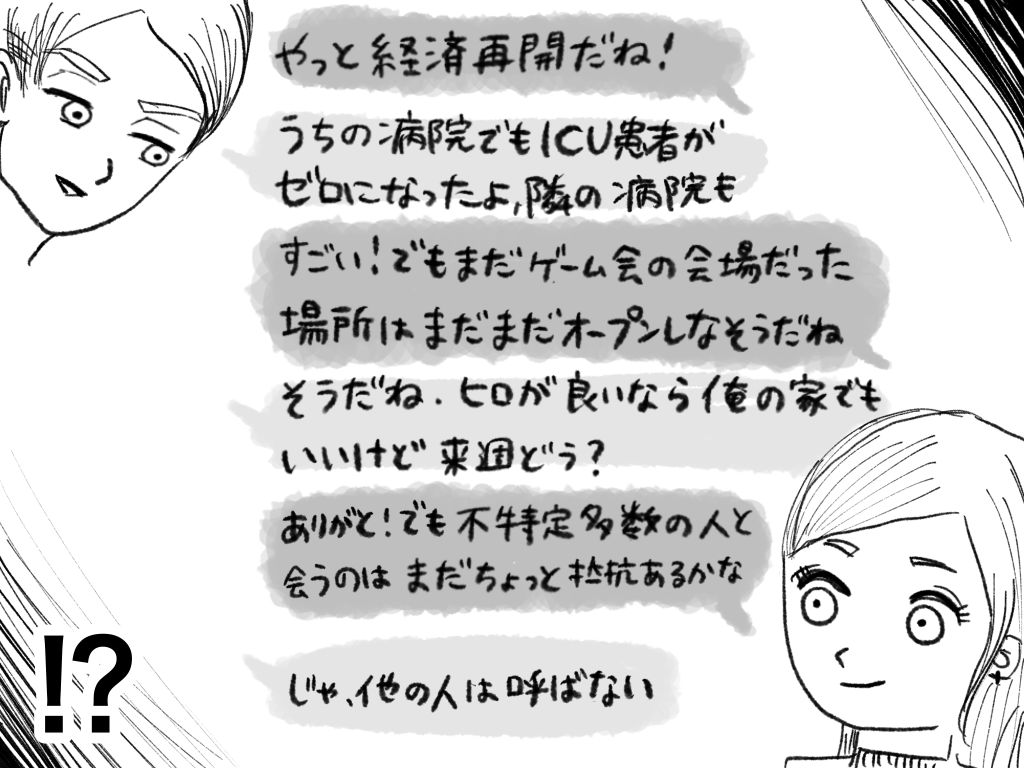 やっと経済再開だね!
うちの病院でもICU患者が
ゼロになったよ,隣の病院も
すごい!でもまだゲーム会の会場だった
場所はまだまだオープンしなそうだね
そうだね.ヒロが良いなら俺の家でも
いいけど来週どう?
ありがと!でも不特定多数の人と
会うのはまだちょっと抵抗あるかな
じゃ、他の人は呼ばない
!?